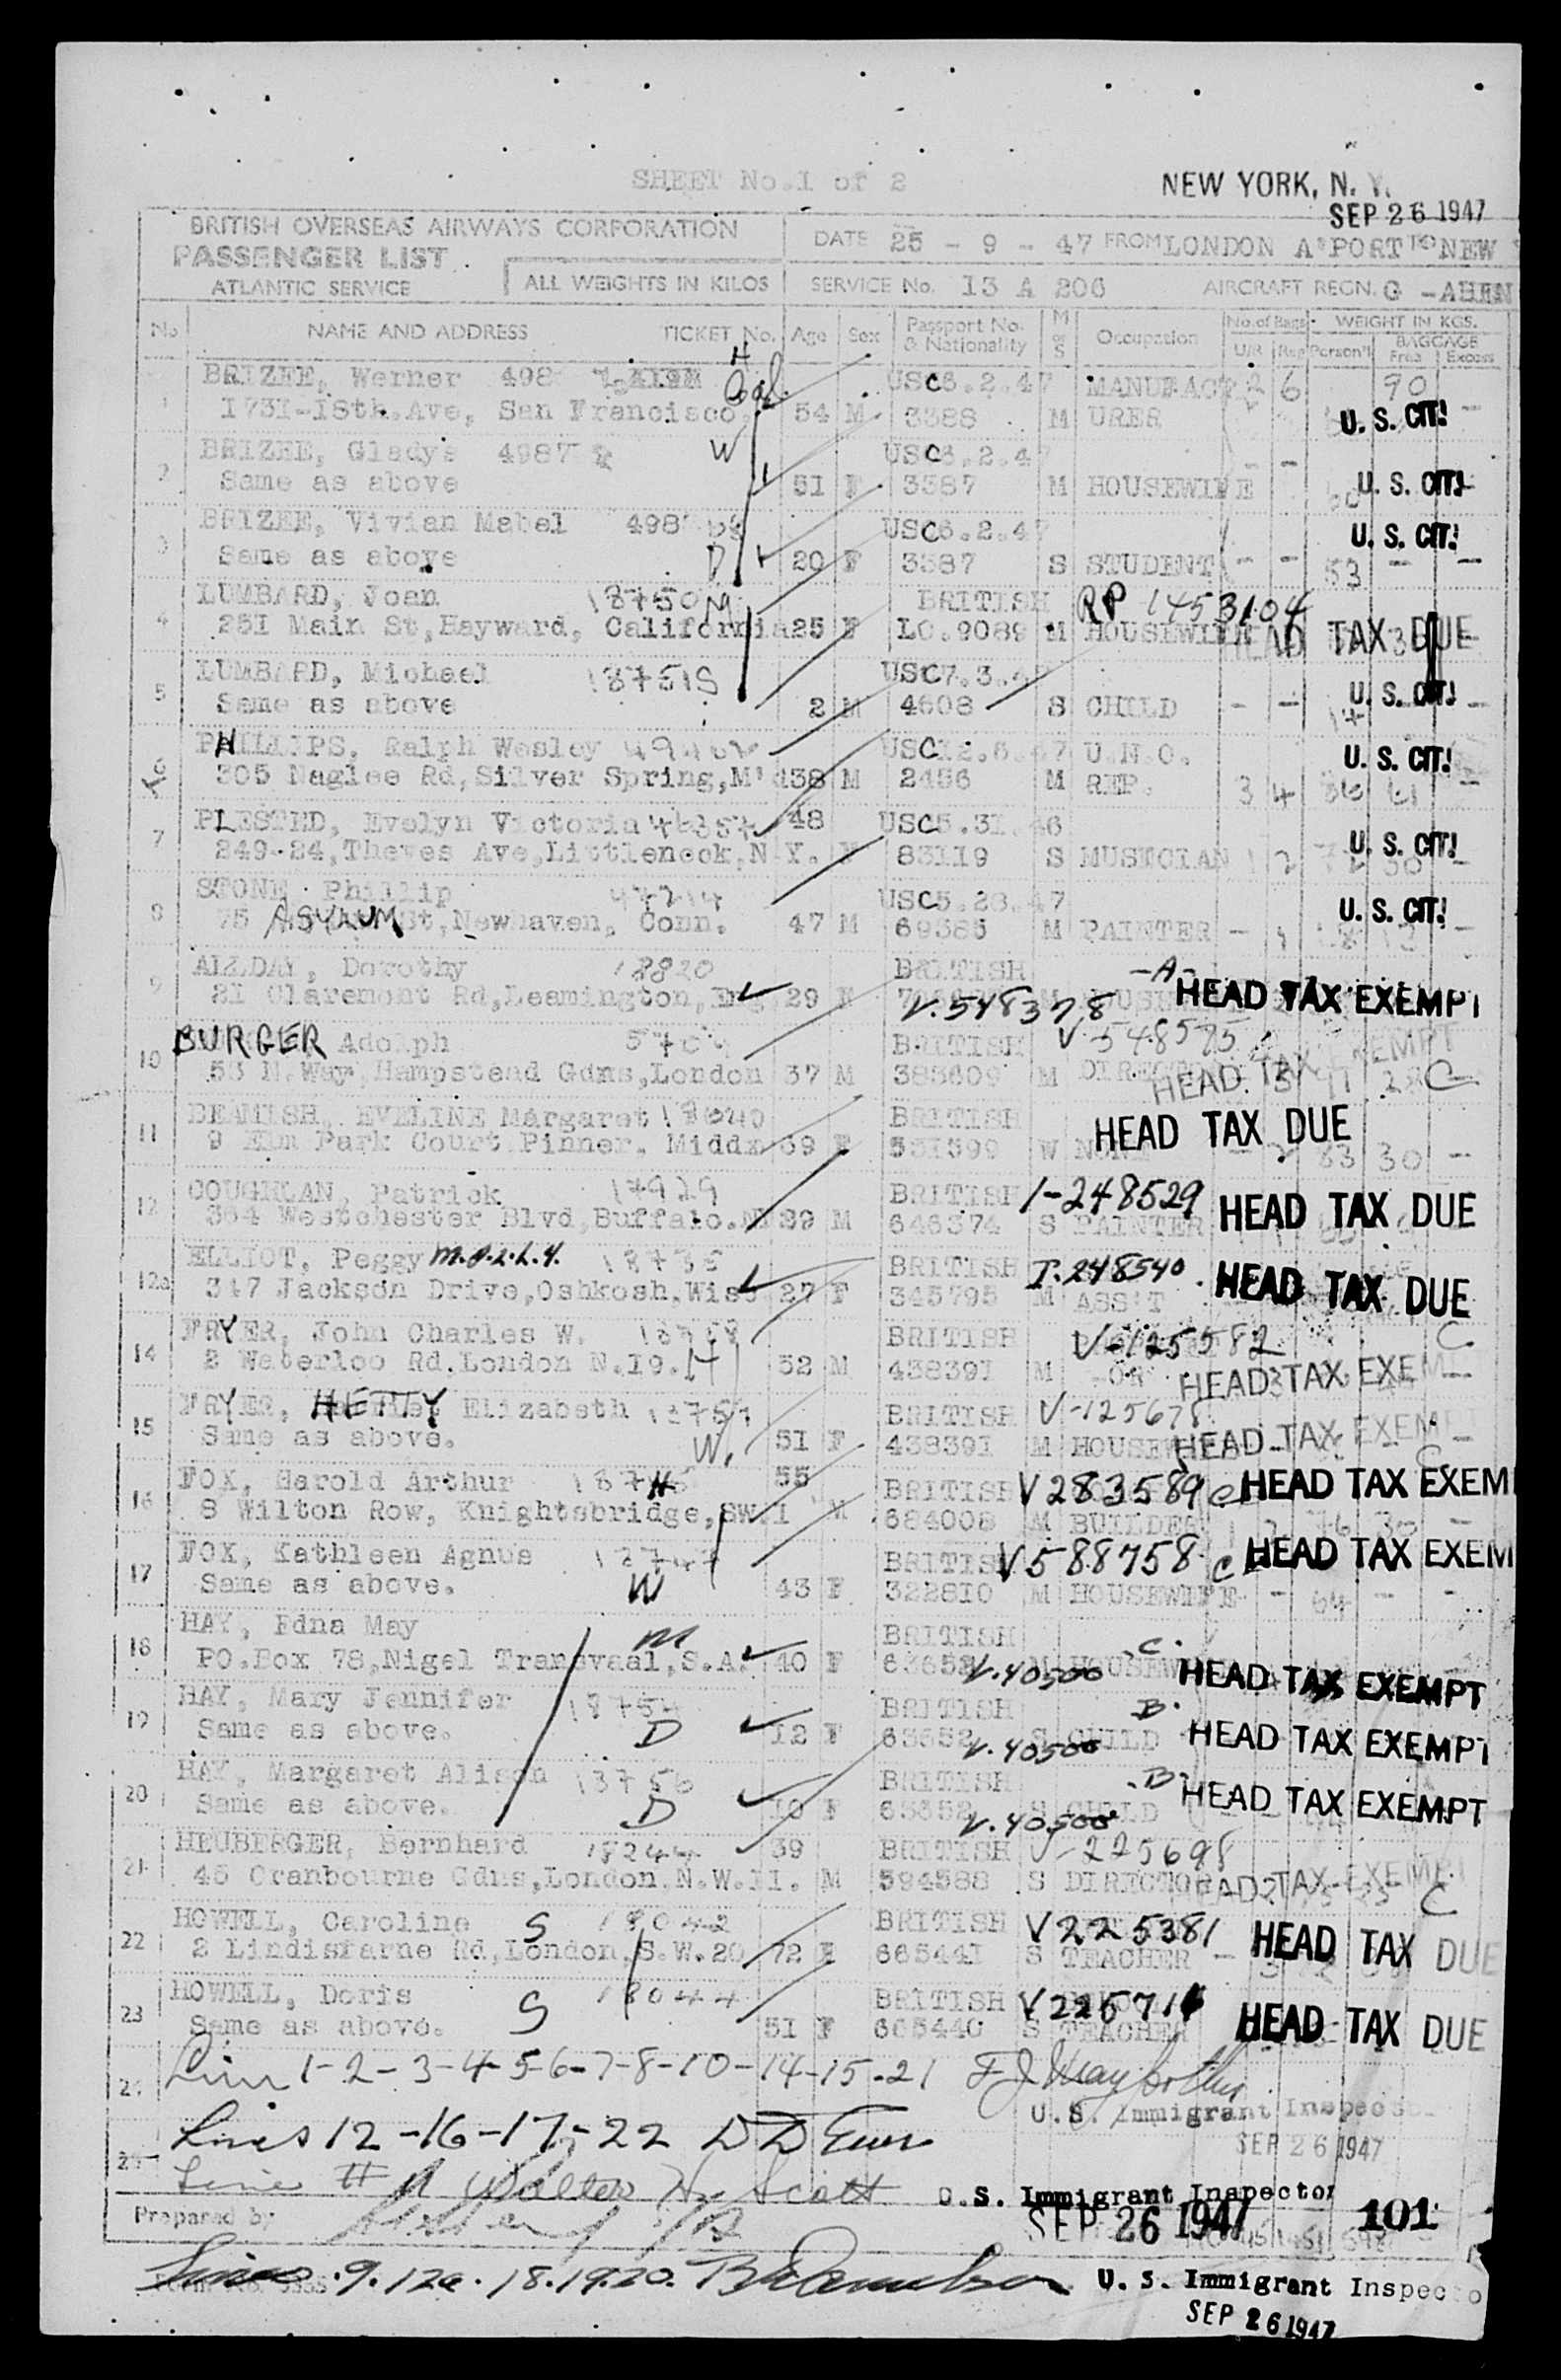 SHEET No.1 of 2
NEW YORK, N. Y.
SEP 26 1947
BRITISH OVERSEAS AIRWAYS CORPORATION
PASSENGER LIST
ATLANTIC SERVICE
ALL WEIGHTS IN KILOS
DATE 25 - 9 - 47 FROM LONDON A'PORT TO NEW
SERVICE No. 13 A 206 AIRCRAFT REGN. G -AHEN
No NAME AND ADDRESS TICKET No. Age Sex Passport No. & Nationality M or S Occupation No. of Bags U/R Reg WEIGHT IN KGS. Person'l BAGGAGE Free Excess
1 BRIZEE, Werner 498 H USC6.2.47 MANUFACT 2 6 90
1731-18th.Ave, San Francisco, 54 M 3388 M URER U. S. CIT!
2 BRIZEE, Gladys 4987 W USC6.2.47
Same as above 51 F 3387 M HOUSEWIFE - - U. S. CIT!
3 BRIZEE, Vivian Mabel 498 USC6.2.47 U. S. CIT!
Same as above D 20 F 3387 S STUDENT - - 53 - -
4 LUMBARD, Joan 18750 M BRITISH RP 1453104
251 Main St,Hayward, California 25 F LO.9089 M HOUSEWIFE HEAD TAX DUE
5 LUMBARD, Michael 18751 S USC7.3.4 U. S. CIT!
Same as above 2 M 4608 S CHILD - - 14 -
6 PHILLIPS, Ralph Wesley USC12.6.47 U.N.O. U. S. CIT!
305 Naglee Rd,Silver Spring,Md 38 M 2456 M REP. 3 4
7 PLESTED, Evelyn Victoria 48 USC5.31.46
249-24,Thewes Ave,Littleneck,N.Y. F 83119 S MUSICIAN 1 2 U. S. CIT!
8 STONE Phillip 47214 USC5.28.47
75 ASYLUM St,Newhaven, Conn. 47 M 69385 M PAINTER - 1 U. S. CIT!
9 ALLDAY, Dorothy 18820 BRITISH -A-
21 Claremont Rd,Leamington,En 29 F V.548378 HEAD TAX EXEMPT
10 BURGER Adolph BRITISH V 548575
53 N.Way,Hampstead Gdns,London 37 M 383609 M DIRECTOR HEAD TAX EXEMPT C
11 BEAMISH, EVELINE Margaret 18040 BRITISH HEAD TAX DUE
9 Elm Park Court Pinner. Middx 69 F 531399 W NONE - 2 63 30 -
12 COUGHLAN, Patrick 17929 BRITISH I-248529
364 Westchester Blvd,Buffalo.NY 29 M 646374 S PAINTER HEAD TAX DUE
12a ELLIOT, Peggy M.O.L.L.Y. BRITISH I.248540
347 Jackson Drive,Oshkosh.Wisc 27 F 345795 M ASS'T HEAD TAX DUE
14 FRYER, John Charles W. BRITISH V-125582 C
2 Waterloo Rd.London N.19. H 52 M 438391 M HEAD TAX EXEM
15 FRYER, HETTY Elizabeth 18759 BRITISH V-125678
Same as above. W. 51 F 438391 M HOUSEW HEAD TAX EXEMPT C
16 FOX, Harold Arthur H 55 BRITISH V283589 C HEAD TAX EXEM
8 Wilton Row, Knightsbridge,SW.1 M 684008 M BUILDER
17 FOX, Kathleen Agnus BRITISH V588758 C HEAD TAX EXEM
Same as above. W 43 F 322810 M HOUSEWIFE - 64 - -
18 HAY, Edna May M BRITISH C.
PO.Box 78,Nigel Transvaal,S.A. 40 F 63652 V.40500 HOUSEW HEAD TAX EXEMPT
19 HAY, Mary Jennifer BRITISH B.
Same as above. D 12 F 63652 V.40500 S CHILD HEAD TAX EXEMPT
20 HAY, Margaret Alison 18756 BRITISH B.
Same as above. D 10 F 63652 V.40500 S CHILD HEAD TAX EXEMPT
21 HEUBERGER, Bernhard 18244 39 BRITISH V-225698
45 Cranbourne Gdns,London.N.W.11. M 594588 S DIRECTOR HEAD TAX EXEMPT C
22 HOWELL, Caroline S 18042 BRITISH V225381
2 Lindisfarne Rd,London,S.W.20 72 F 665441 S TEACHER - HEAD TAX DUE
23 HOWELL, Doris S 18044 BRITISH V225716
Same as above. 51 F 665440 S TEACHER HEAD TAX DUE
24 Line 1-2-3-4-5-6-7-8-10-14-15-21
U.S. Immigrant Inspector
SEP 26 1947
Lines 12-16-17-22
25 Line # 11 Walter H. Scott U.S. Immigrant Inspector
Prepared by SEP 26 1947 101
Lines 9.12a.18.19.20. U. S. Immigrant Inspecto
SEP 26 1947